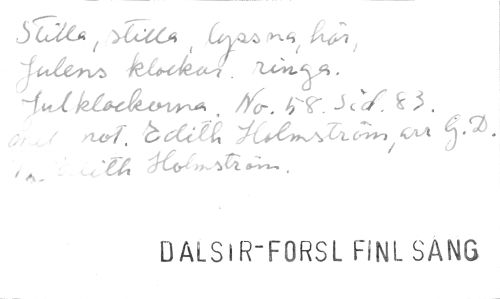 Stilla, stilla, lyssna, hör,
Julens klockor ringa.
Julklockorna. No. 58. Sid. 83.
not. Edith Holmström, arr G.D.
Edith Holmström.
DALSIR-FORSL FINL SANG